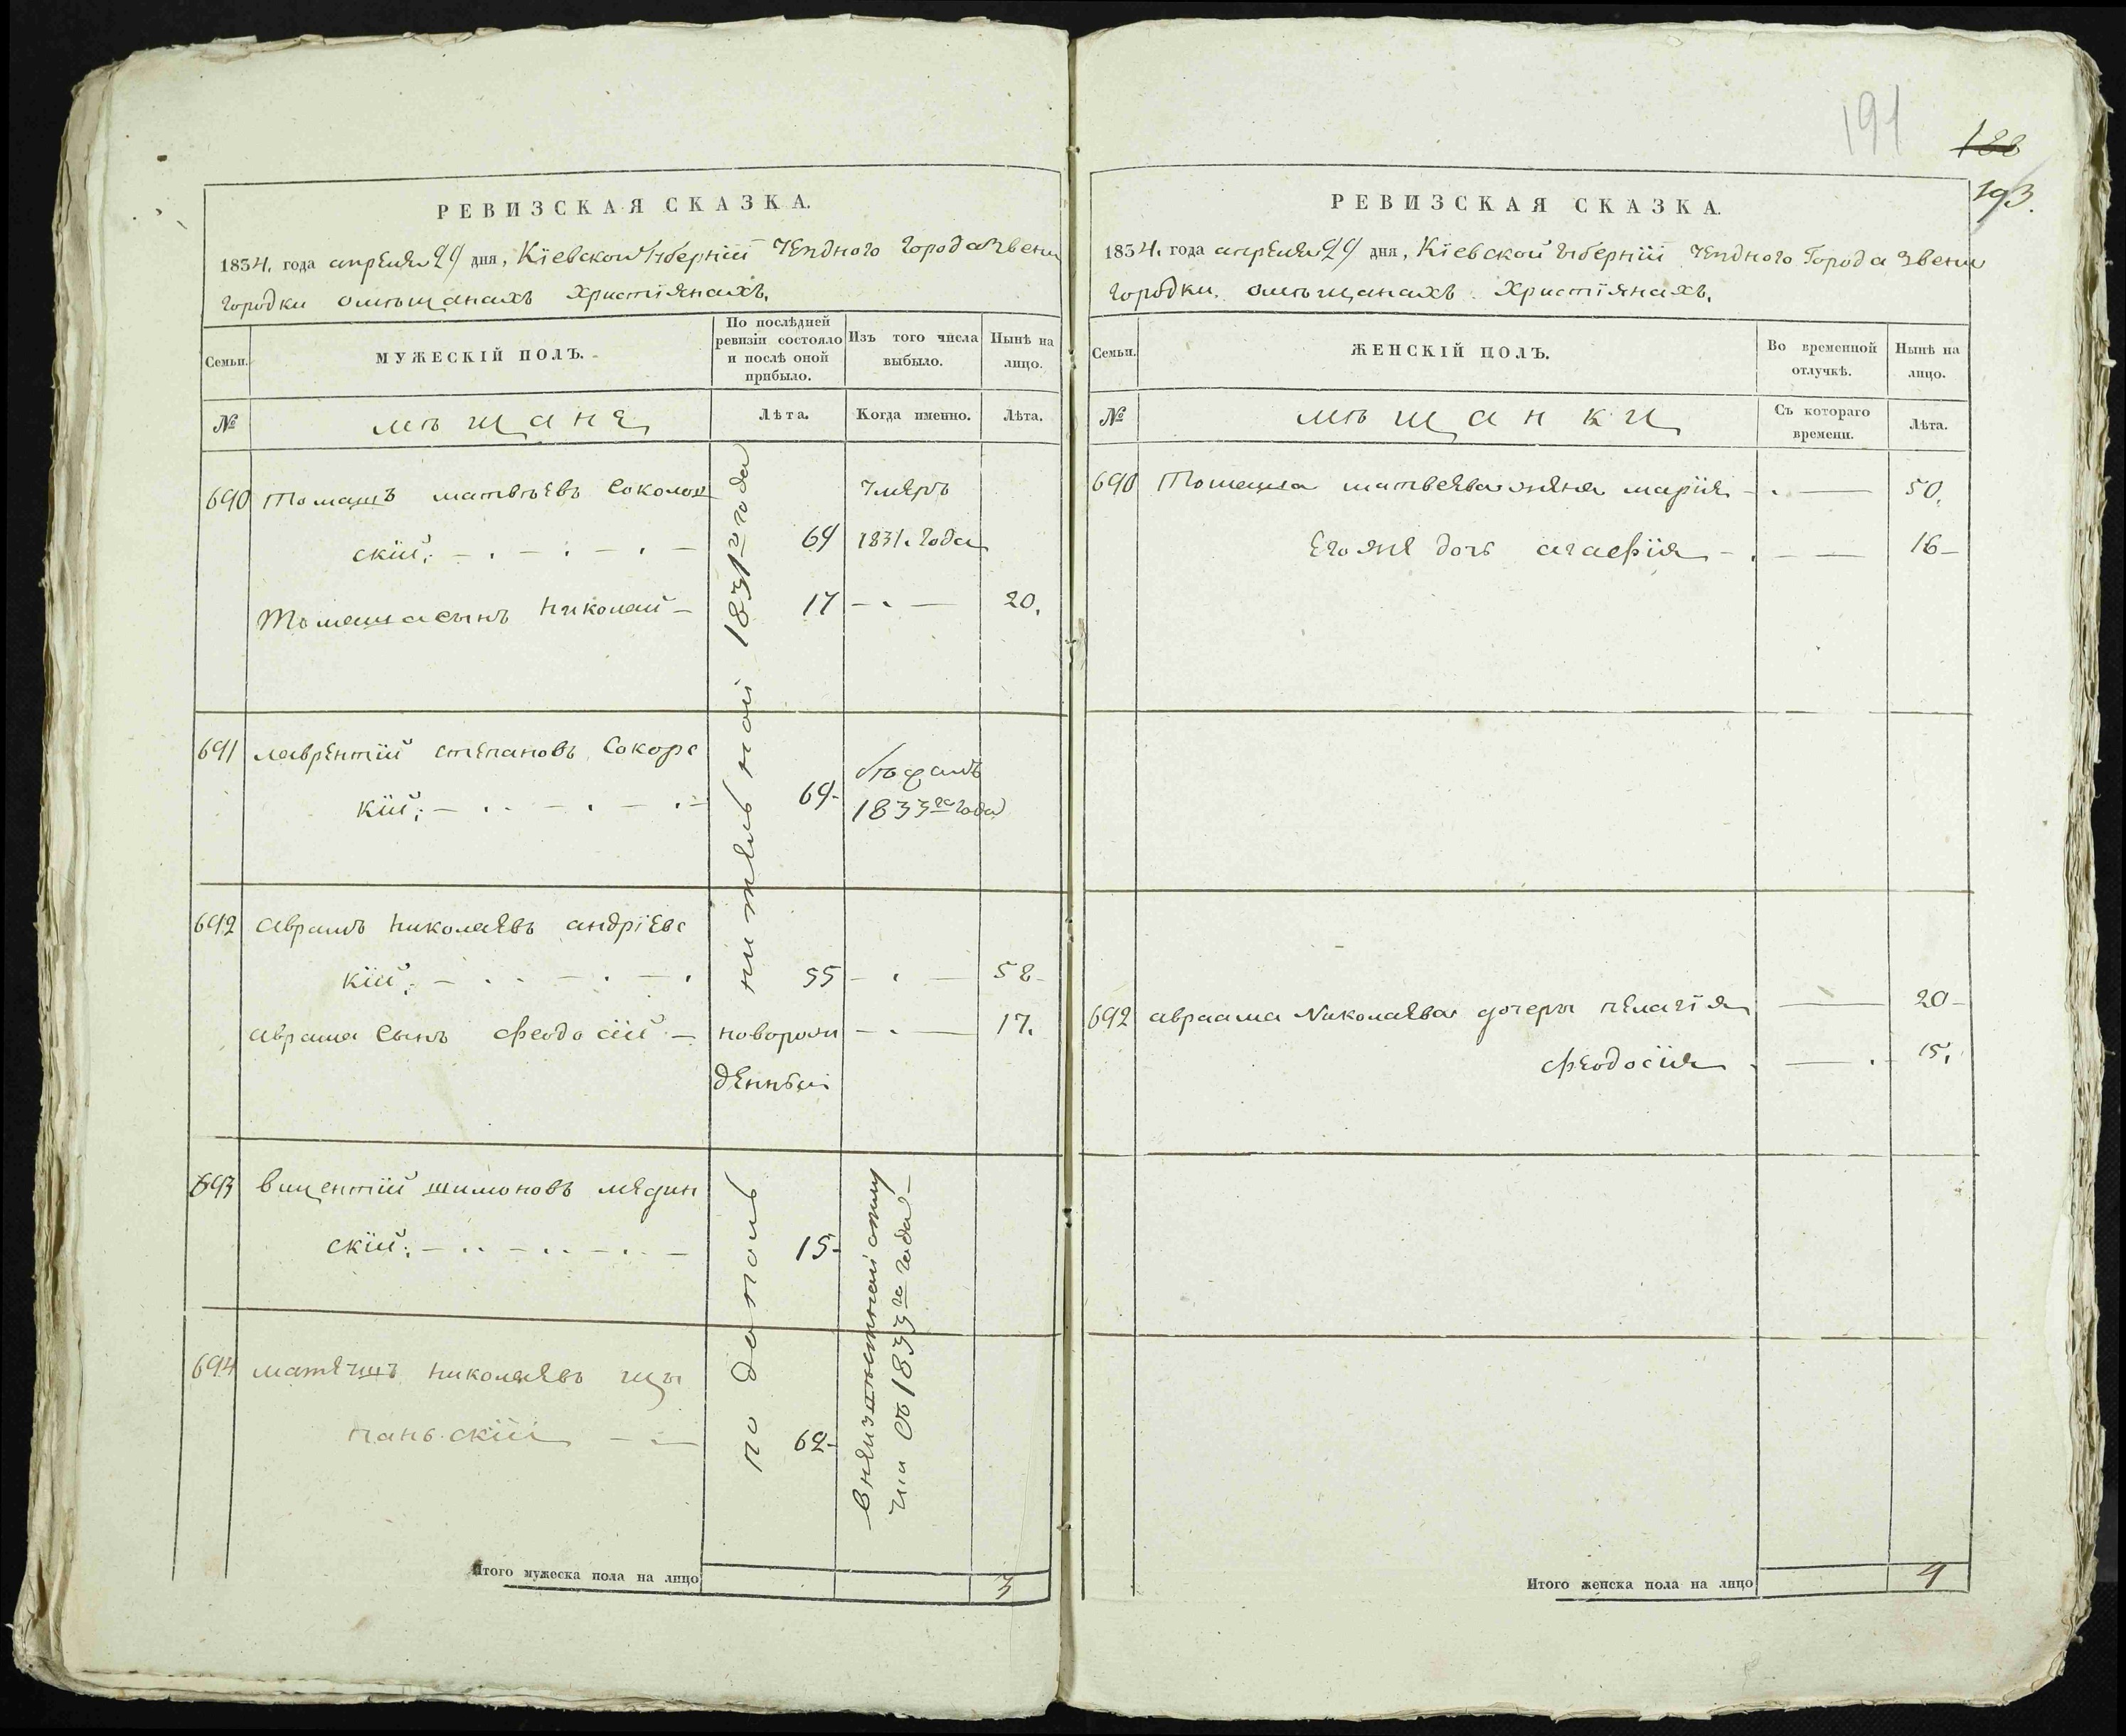 191
188
193.
РЕВИЗСКАЯ СКАЗКА.
1834. года апреля 29 дня, Кіевской Губерніи Уезднаго Города Звени
городки о мѣщанахъ Христіянахъ.
Семьи.
МУЖЕСКІЙ ПОЛЪ.
По послѣдней ревизіи состояло и послѣ оной прибыло.
Изъ того числа выбыло.
Нынѣ на лицо.
№
мѣщане
Лѣта.
Когда именно.
Лѣта.
по дополнительной 1831го года
690 Томашъ матвѣевъ Соколов
скій; 64 Умеръ 1831. Года
Томаша сынъ Николай 17 20.
691 лаврентій степановъ Сокорс
кій; 64 1833го года
692 Аврамъ Николаевъ андріевс
кій; 55 58
Аврама Сынъ Феодосій новорож
денный 17.
693 вицентій шимоновъ медин
скій; 15
694 матеушъ николаевъ щы
пань.скій 62
в неизвѣстной отлу
чки съ 1833го года
Итого мужеска пола на лицо 3
РЕВИЗСКАЯ СКАЗКА.
1834. года апреля 29 дня, Кіевской Губерніи Уезднаго Города Звени
городки. о мѣщанахъ Христіянахъ.
Семьи.
ЖЕНСКІЙ ПОЛЪ.
Во временной отлучкѣ.
Нынѣ на лицо.
№
мѣщанки
Съ котораго времени.
Лѣта.
690 Томаша матвеева жена марія 50.
Его же дочь агафія 16
692 авраама Николаева дочери пелагія 20
феодосія 15.
Итого женска пола на лицо 4